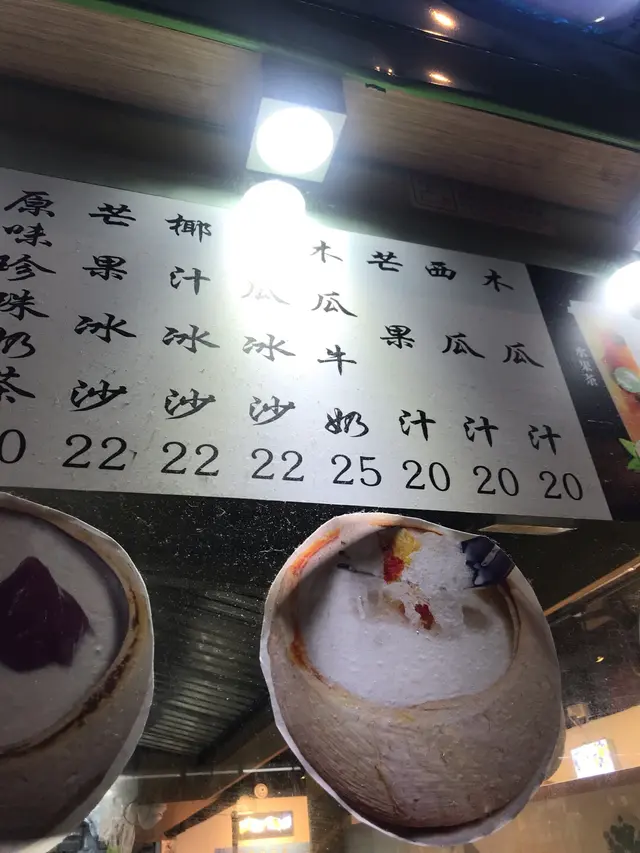 原味珍珠奶茶
芒果冰沙
22
椰汁冰沙
22
瓜冰沙
22
木瓜牛奶
25
芒果汁
20
西瓜汁
20
木瓜汁
20
水果茶